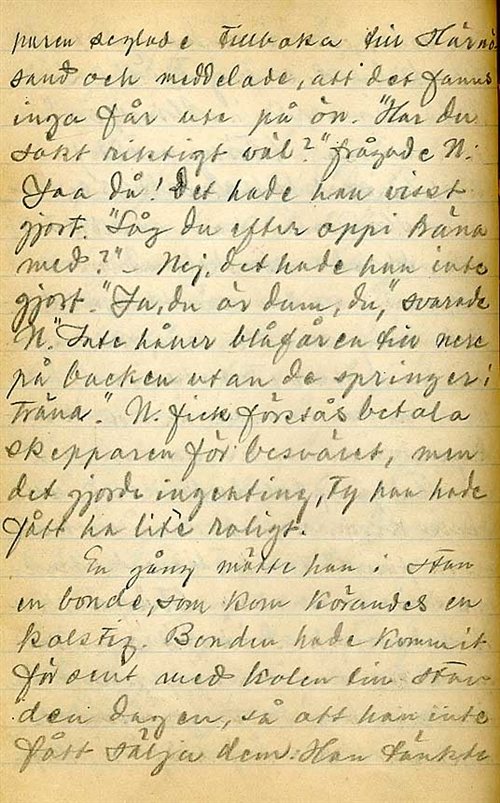 paren seglade tillbaka till Härnö
sand och meddelade, att det fanns
inga får ute på ön. "Har du
sökt riktigt väl?" frågade N.
Jaa då! Det hade han visst
gjort. "Såg du efter oppi träna
med?" - Nej, det hade han inte
gjort. "Ja, du är dum, du," svarade
N. "Inte håller blåfåren till nere
på backen utan de springer i
träna." N. fick förstås betala
skepparen för besväret, men
det gjorde ingenting, ty han hade
fått ha lite roligt.
En gång mötte han i stan
en bonde, som kom körandes en
kolstig. Bonden hade kommit
för sent med kolen till stan
den dagen, så att han inte
fått sälja dem. Han tänkte